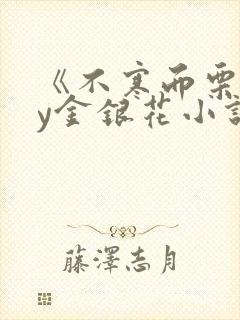 《不寒而栗
y金银花小說
藤澤志月